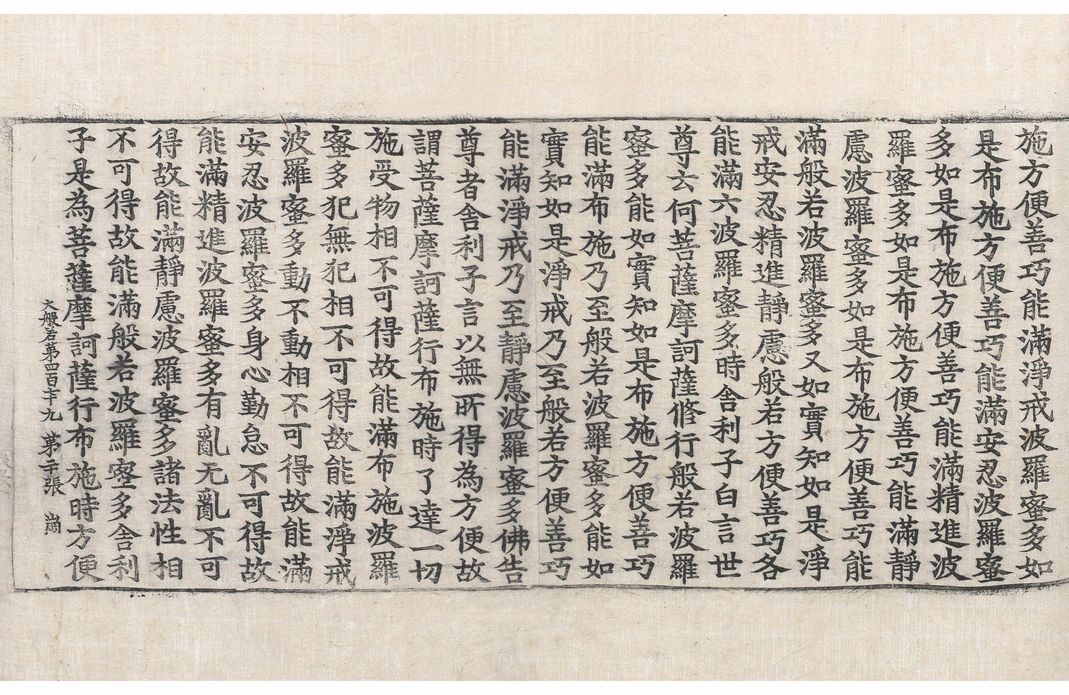 施方便善巧能滿淨戒波羅蜜多如
是布施方便善巧能滿安忍波羅蜜
多如是布施方便善巧能滿精進波
羅蜜多如是布施方便善巧能滿靜
慮波羅蜜多如是布施方便善巧能
滿般若波羅蜜多又如實知如是淨
戒安忍精進靜慮般若方便善巧各
能滿六波羅蜜多時舍利子白言世
尊云何菩薩摩訶薩修行般若波羅
蜜多能如實知如是布施方便善巧
能滿布施乃至般若波羅蜜多能如
實知如是淨戒乃至般若方便善巧
能滿淨戒乃至靜慮波羅蜜多佛告
尊者舍利子言以無所得為方便故
謂菩薩摩訶薩行布施時了達一切
施受物相不可得故能滿布施波羅
蜜多犯無犯相不可得故能滿淨戒
波羅蜜多動不動相不可得故能滿
安忍波羅蜜多身心勤怠不可得故
能滿精進波羅蜜多有亂无亂不可
得故能滿靜慮波羅蜜多諸法性相
不可得故能滿般若波羅蜜多舍利
子是為菩薩摩訶薩行布施時方便
大般若第四百七十九 第二張 崗